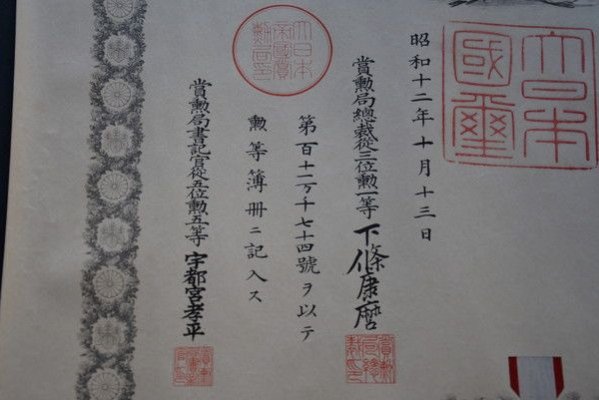 大日本
國璽
昭和十二年十月十三日
賞勲局總裁從三位勲一等下條康麿
大日本
帝國賞
勲局印
第百十二万千七十四號ヲ以テ
勲等簿冊ニ記入ス
賞勲局書記官從五位勲五等宇都宮孝平